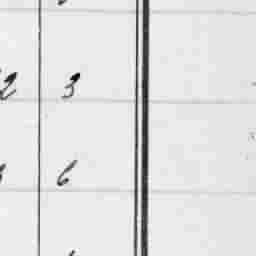 2 3
6